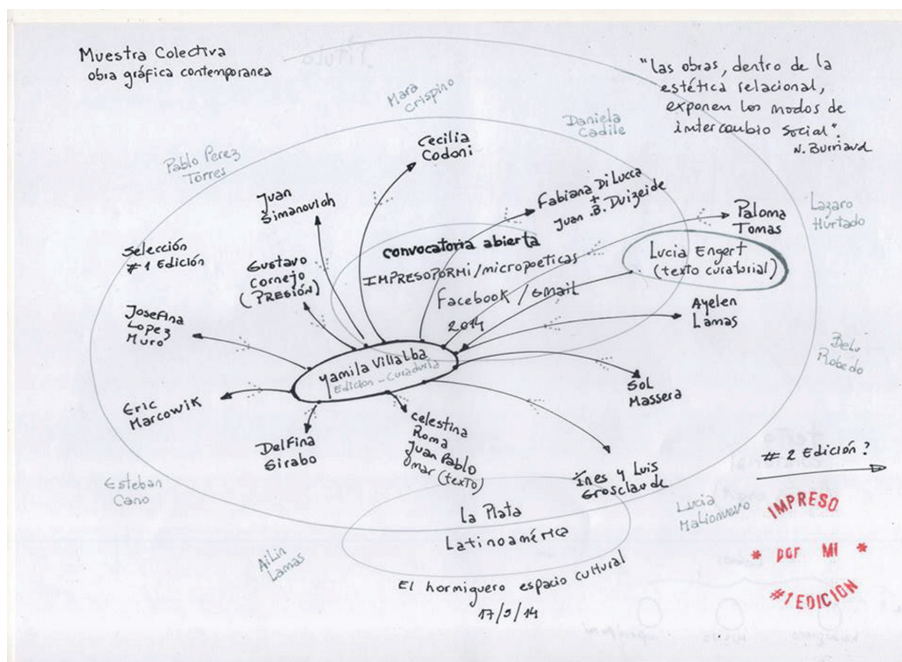 Muestra Colectiva
obra gráfica contemporanea
"las obras, dentro de la
estética relacional,
exponen los modos de
intercambio social".
N. Burriaud
Mara
Crispino
Daniela
Cadile
Pablo Perez
Torres
Cecilia
Codoni
Juan
Simanovich
Fabiana Di Lucca
+
Juan B. Duizeide
Paloma
Tomas
Lazaro
Hurtado
Selección
#1 Edición
Gustavo
Cornejo
(PRESIÓN)
convocatoria abierta
IMPRESOPORMI/micropoeticas
Facebook/Gmail
2014
Lucia Engert
(texto curatorial)
Josefina
Lopez
Muro
Ayelen
Lamas
Yamila Villalba
Edicion_curaduria
Belu
Robedo
Eric
Marcowik
Sol
Massera
Delfina
Girabo
celestina
Roma
Juan Pablo
Omar (texto)
Ines y Luis
Grosclaude
#2 Edición?
Esteban
Cano
La Plata
Latinoamérica
Lucia
Ailin
Lamas
El hormiguero espacio cultural
17/9/14
IMPRESO
* por MI *
#1 EDICION